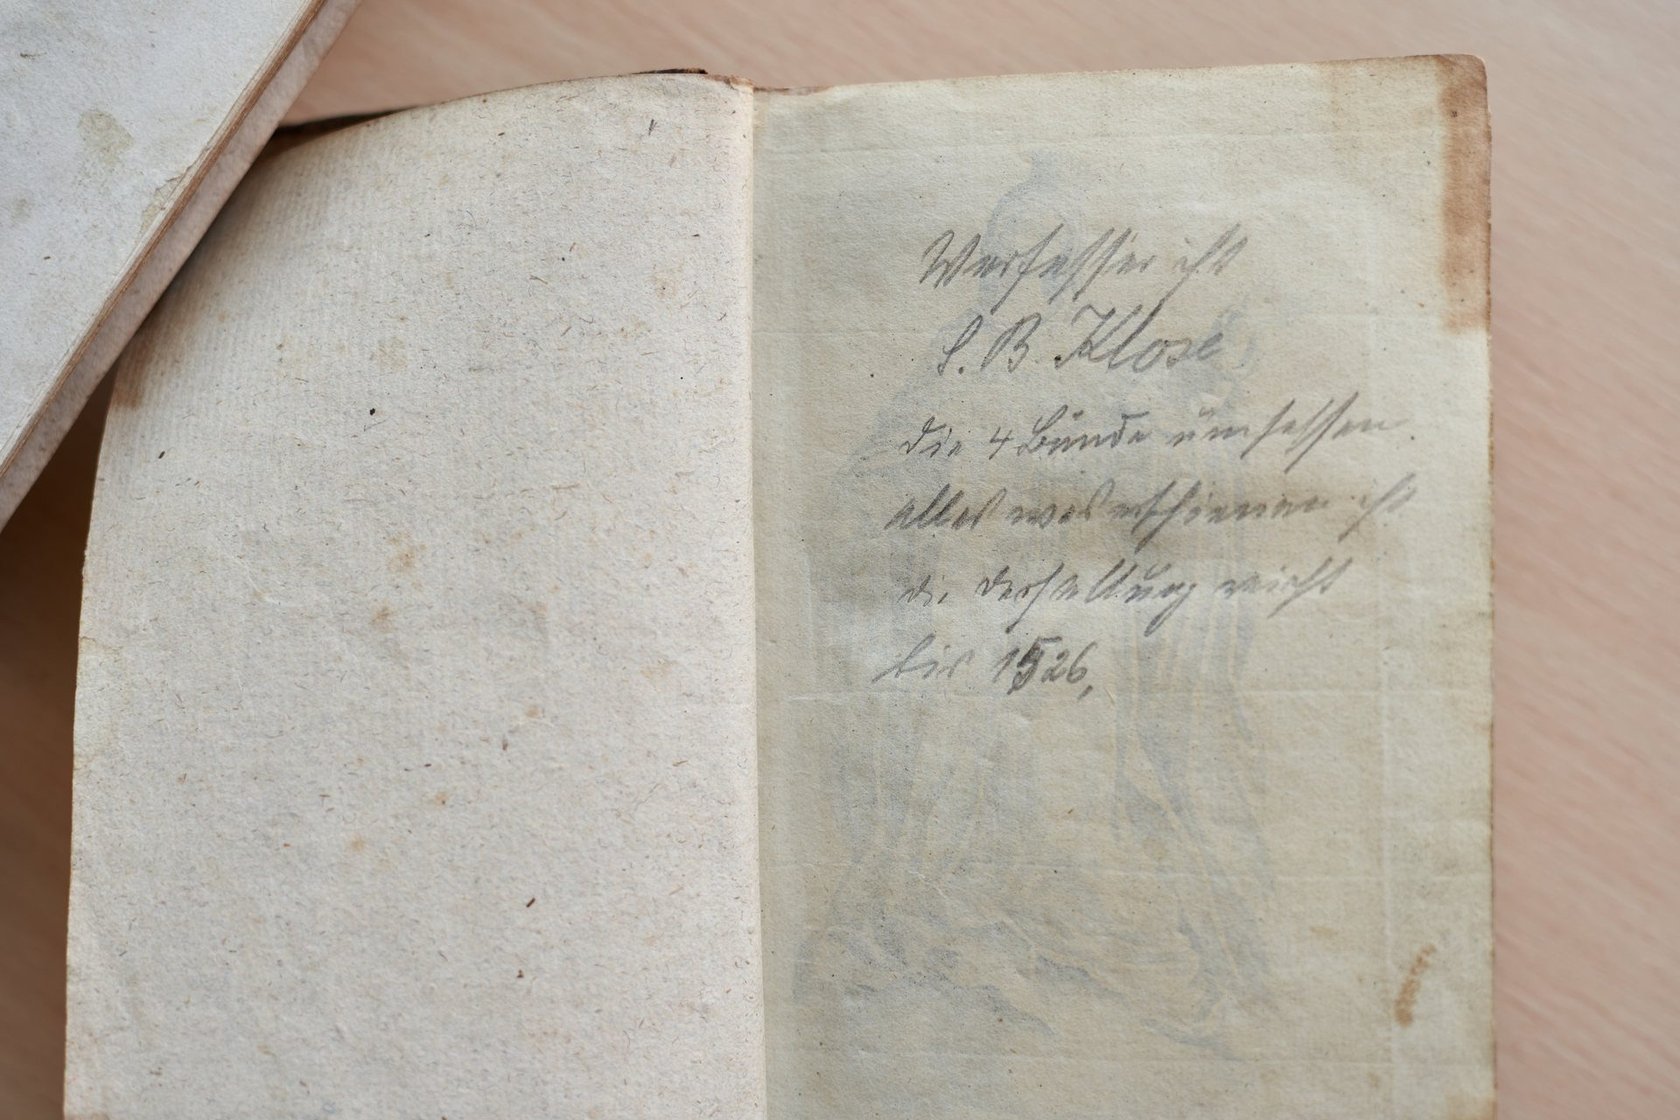 Verfasser ist
S. B. Klose
die 4 Bände umfassen
alles was erschienen ist
die Darstellung reicht
bis 1526,